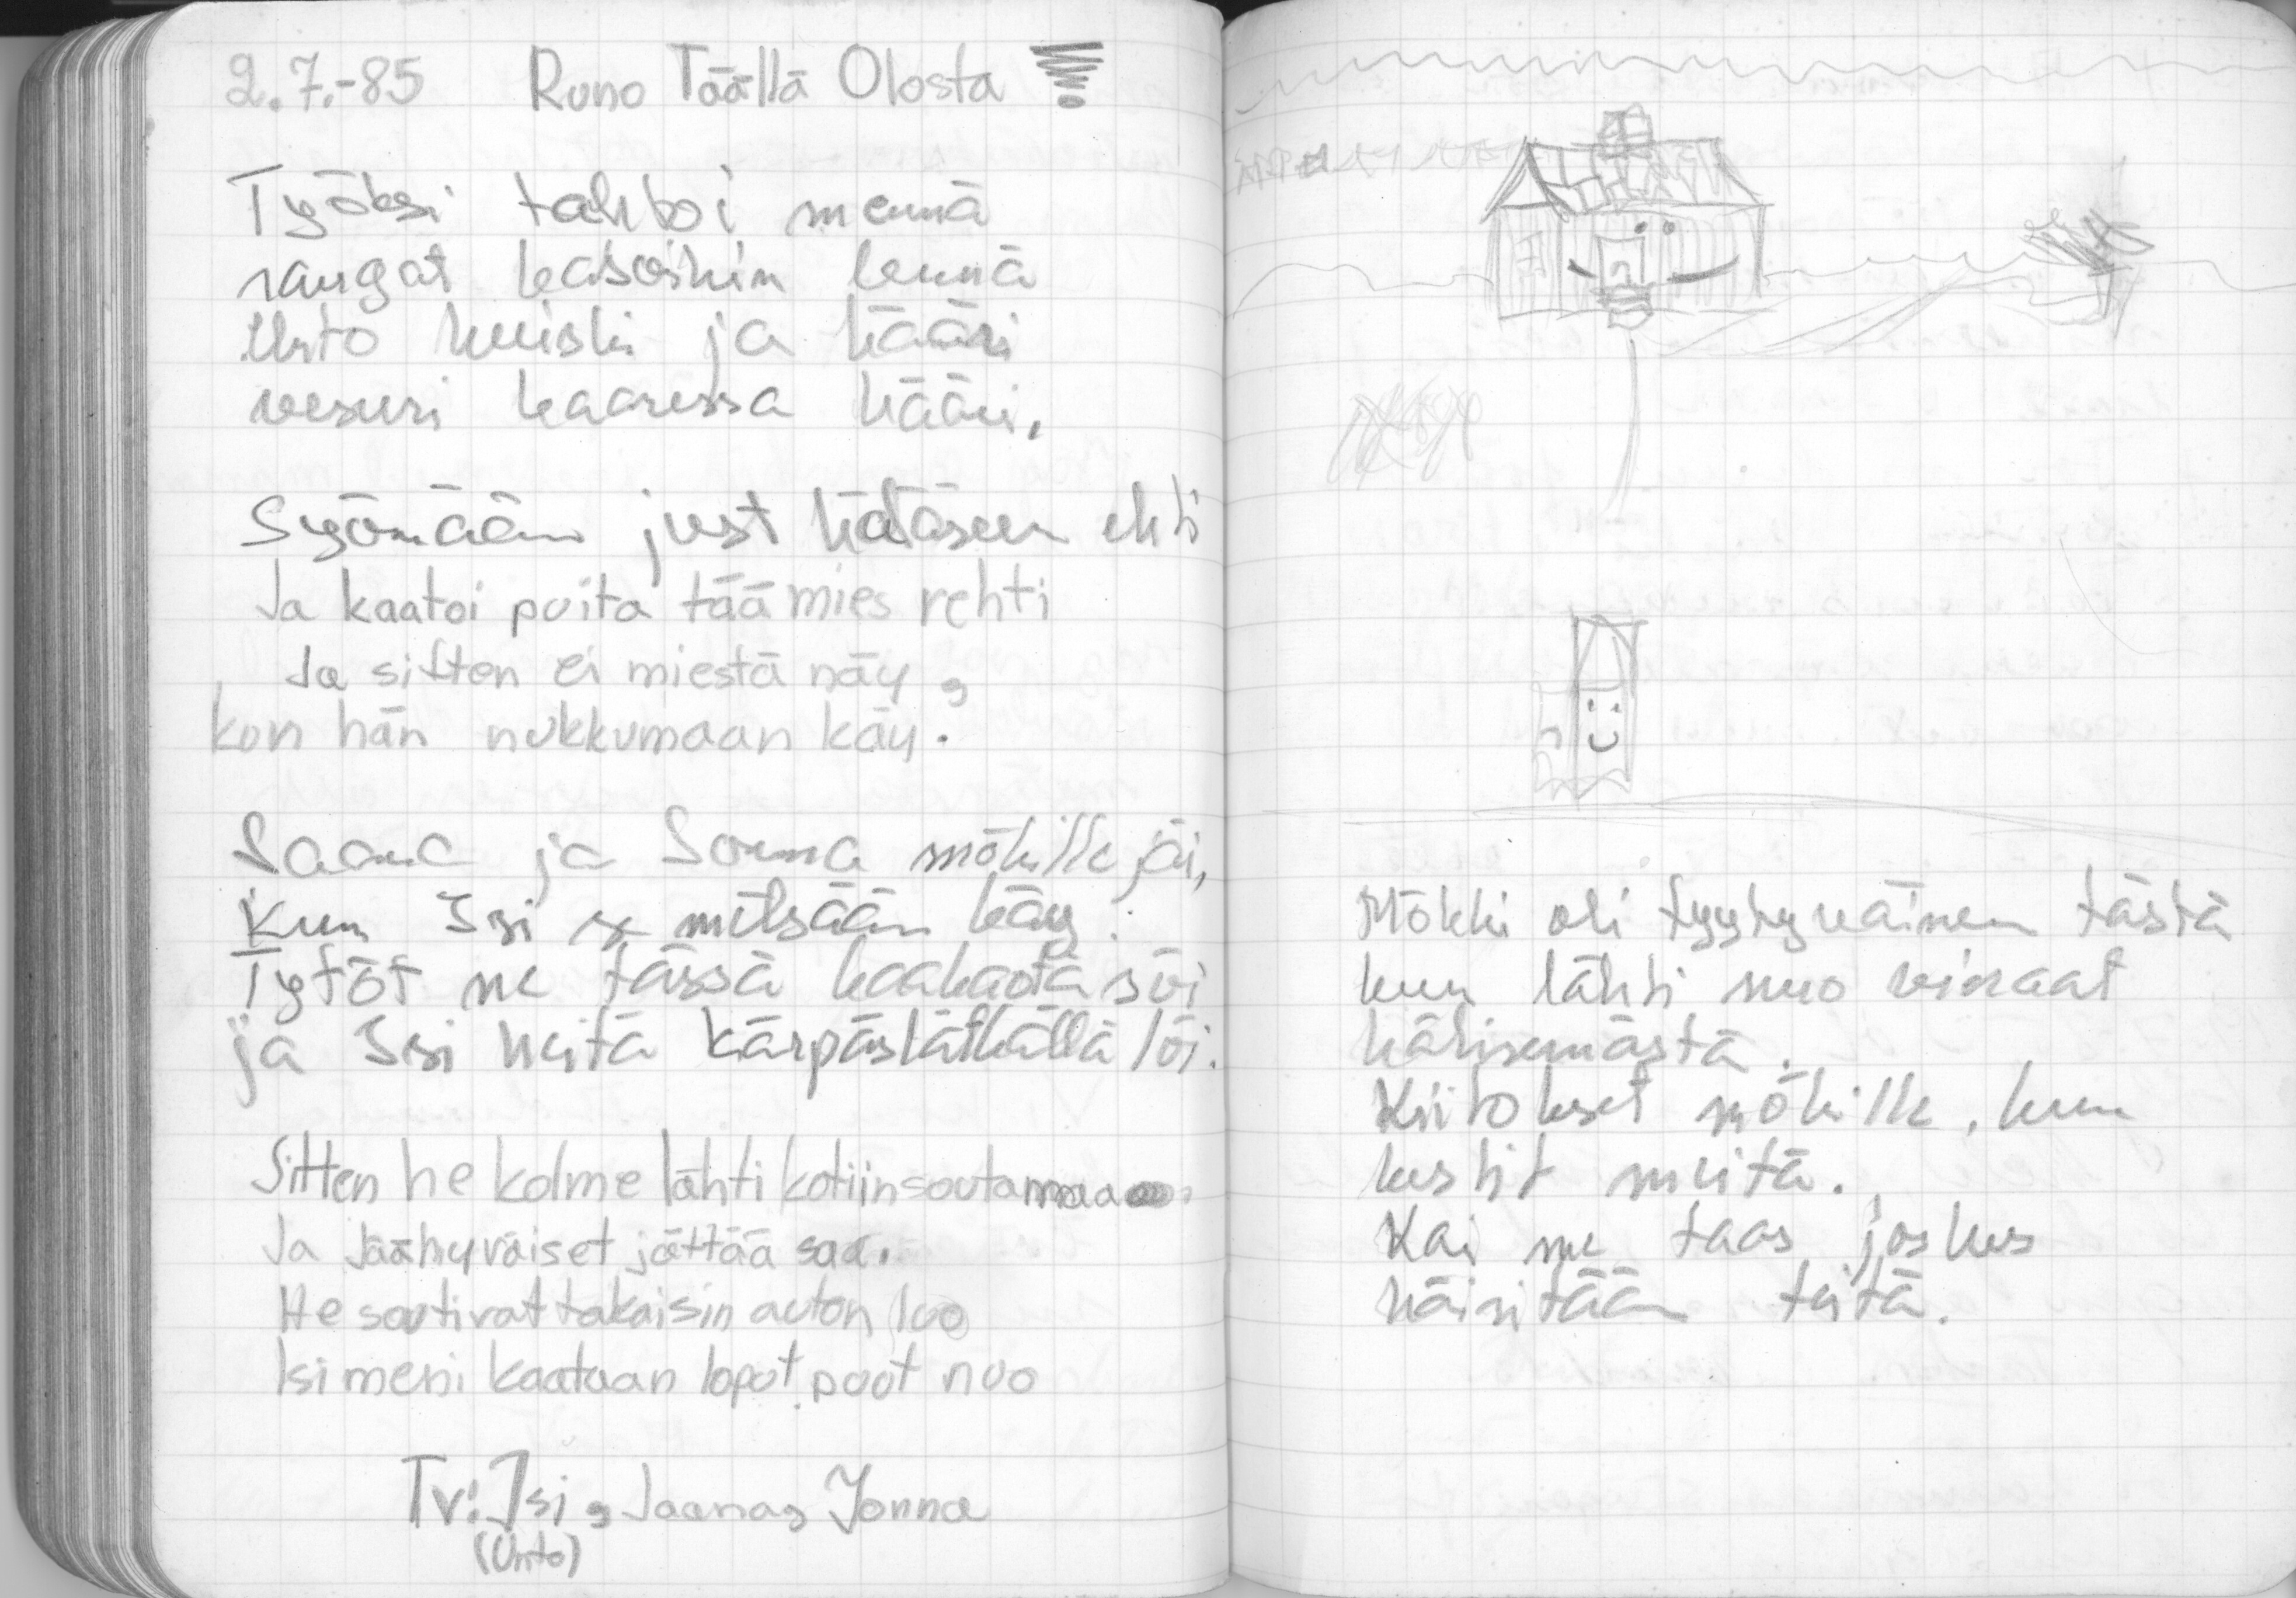 2.7.-85 Runo Täällä Olosta
Työksi tahtoi mennä
rangat kasoihin lennä
Unto huiski ja hääri
vesuri kaaressa kääri.
Syömään just hätäseen ehti
Ja kaatoi puita tää mies rehti
Ja sitten ei miestä näy,
kun hän nukkumaan käy.
Jaana ja Jonna mökille jäi,
kun Isi metsään käy.
Tytöt ne tässä kaakaota söi
ja Isi heitä kärpäslätkällä löi.
Sitten he kolme lähti kotiin soutamaan
Ja Jäähyväiset jättää saa.
He soutivat takaisin auton luo
Isi meni kaataan loput puut nuo
Tv: Isi, Jaana, Jonna
(Unto)
Mökki oli tyytyväinen tästä
kun lähti nuo vieraat
kähisemästä.
Kiitokset mökille, kun
kestit meitä.
Kai me taas joskus
häiritään teitä.